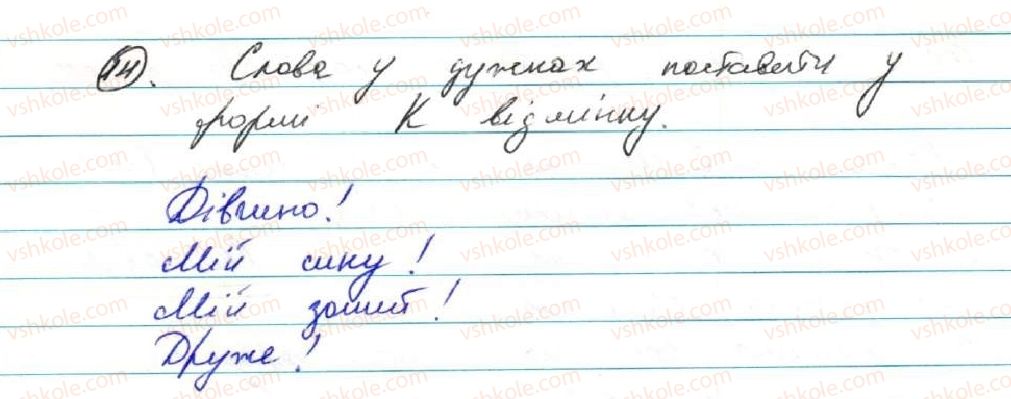 14. Слова у дужках поставити у
формі К відмінку.
Дівчино!
Мій сину!
Мій зошит!
Друже!